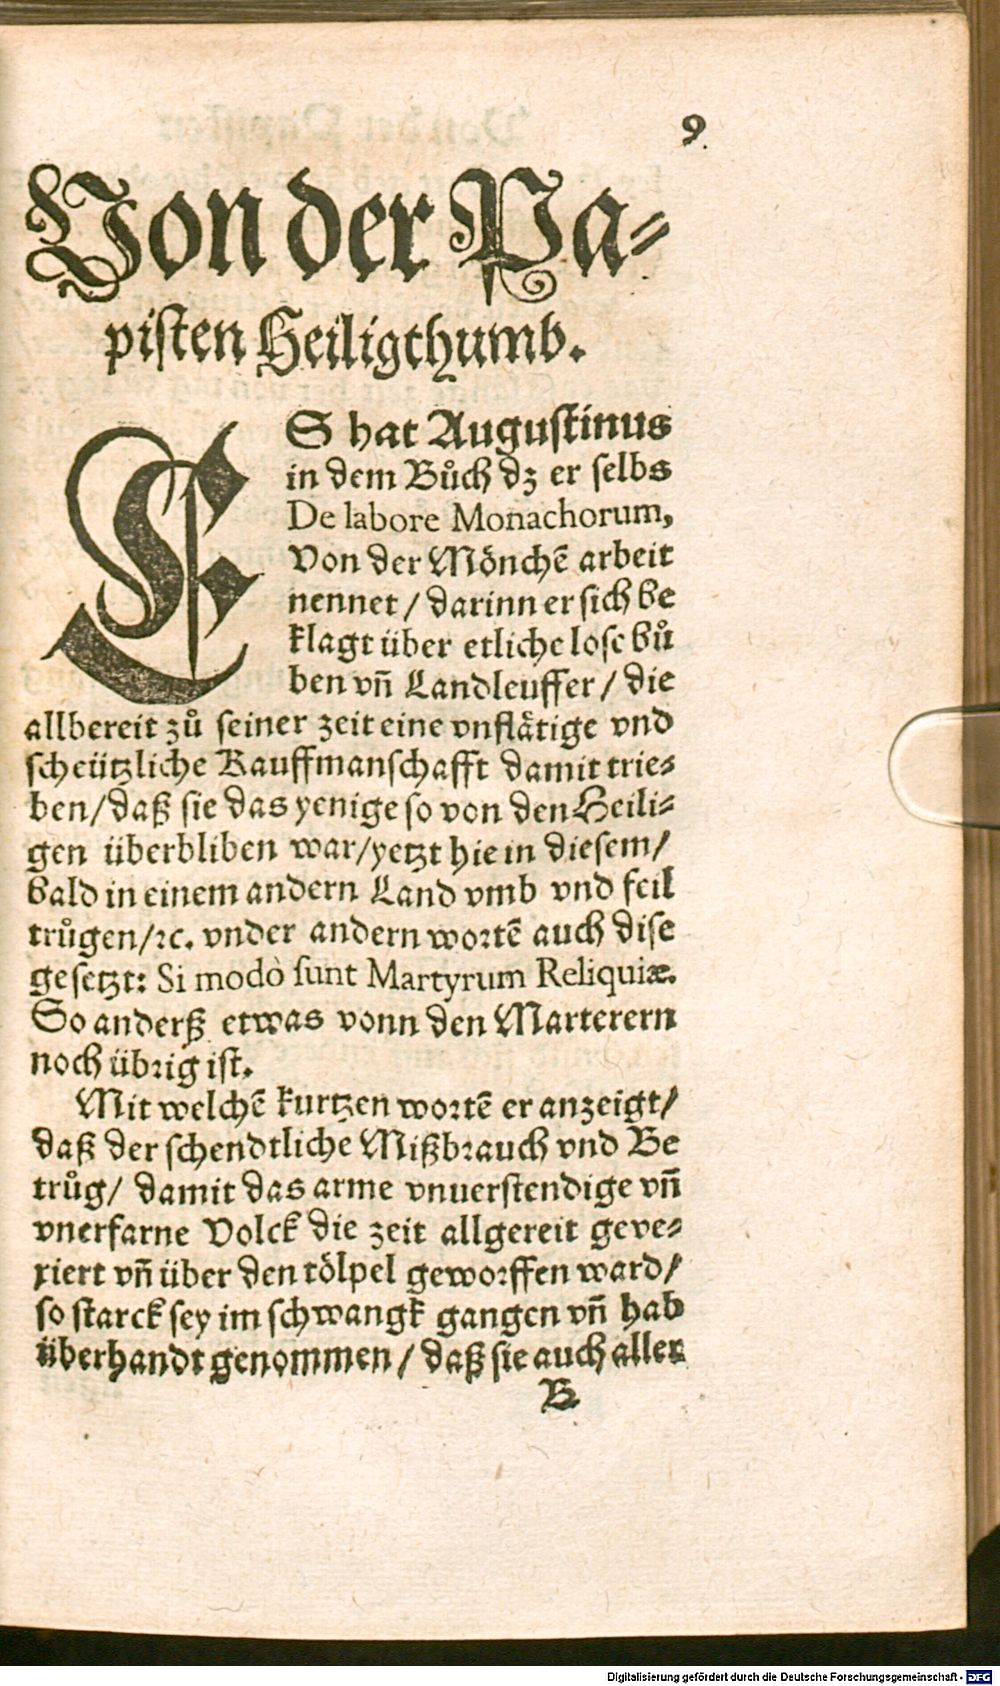 9.
Von der Pa-
pisten Heiligthumb.
ES hat Augustinus
in dem Bůch dz er selbs
De labore Monachorum,
Von der Mönchē arbeit
nennet / darinn er sich be
klagt über etliche lose bů
ben vñ Landleuffer / die
allbereit zů seiner zeit eine vnflätige vnd
scheützliche Kauffmanschafft damit trie-
ben / daß sie das yenige so von den Heili-
gen überbliben war / yetzt hie in diesem /
bald in einem andern Land vmb vnd feil
trůgen / ꝛc. vnder andern wortē auch dise
gesetzt: Si modò sunt Martyrum Reliquiæ.
So anderß etwas vonn den Marterern
noch übrig ist.
Mit welchē kurtzen wortē er anzeigt /
daß der schendtliche Mißbrauch vnd Be
trůg / damit das arme vnuerstendige vñ
vnerfarne Volck die zeit allgereit geve-
xiert vñ über den tölpel geworffen ward /
so starck sey im schwangk gangen vñ hab
überhandt genommen / daß sie auch aller
B.
Digitalisierung gefördert durch die Deutsche Forschungsgemeinschaft - DFG